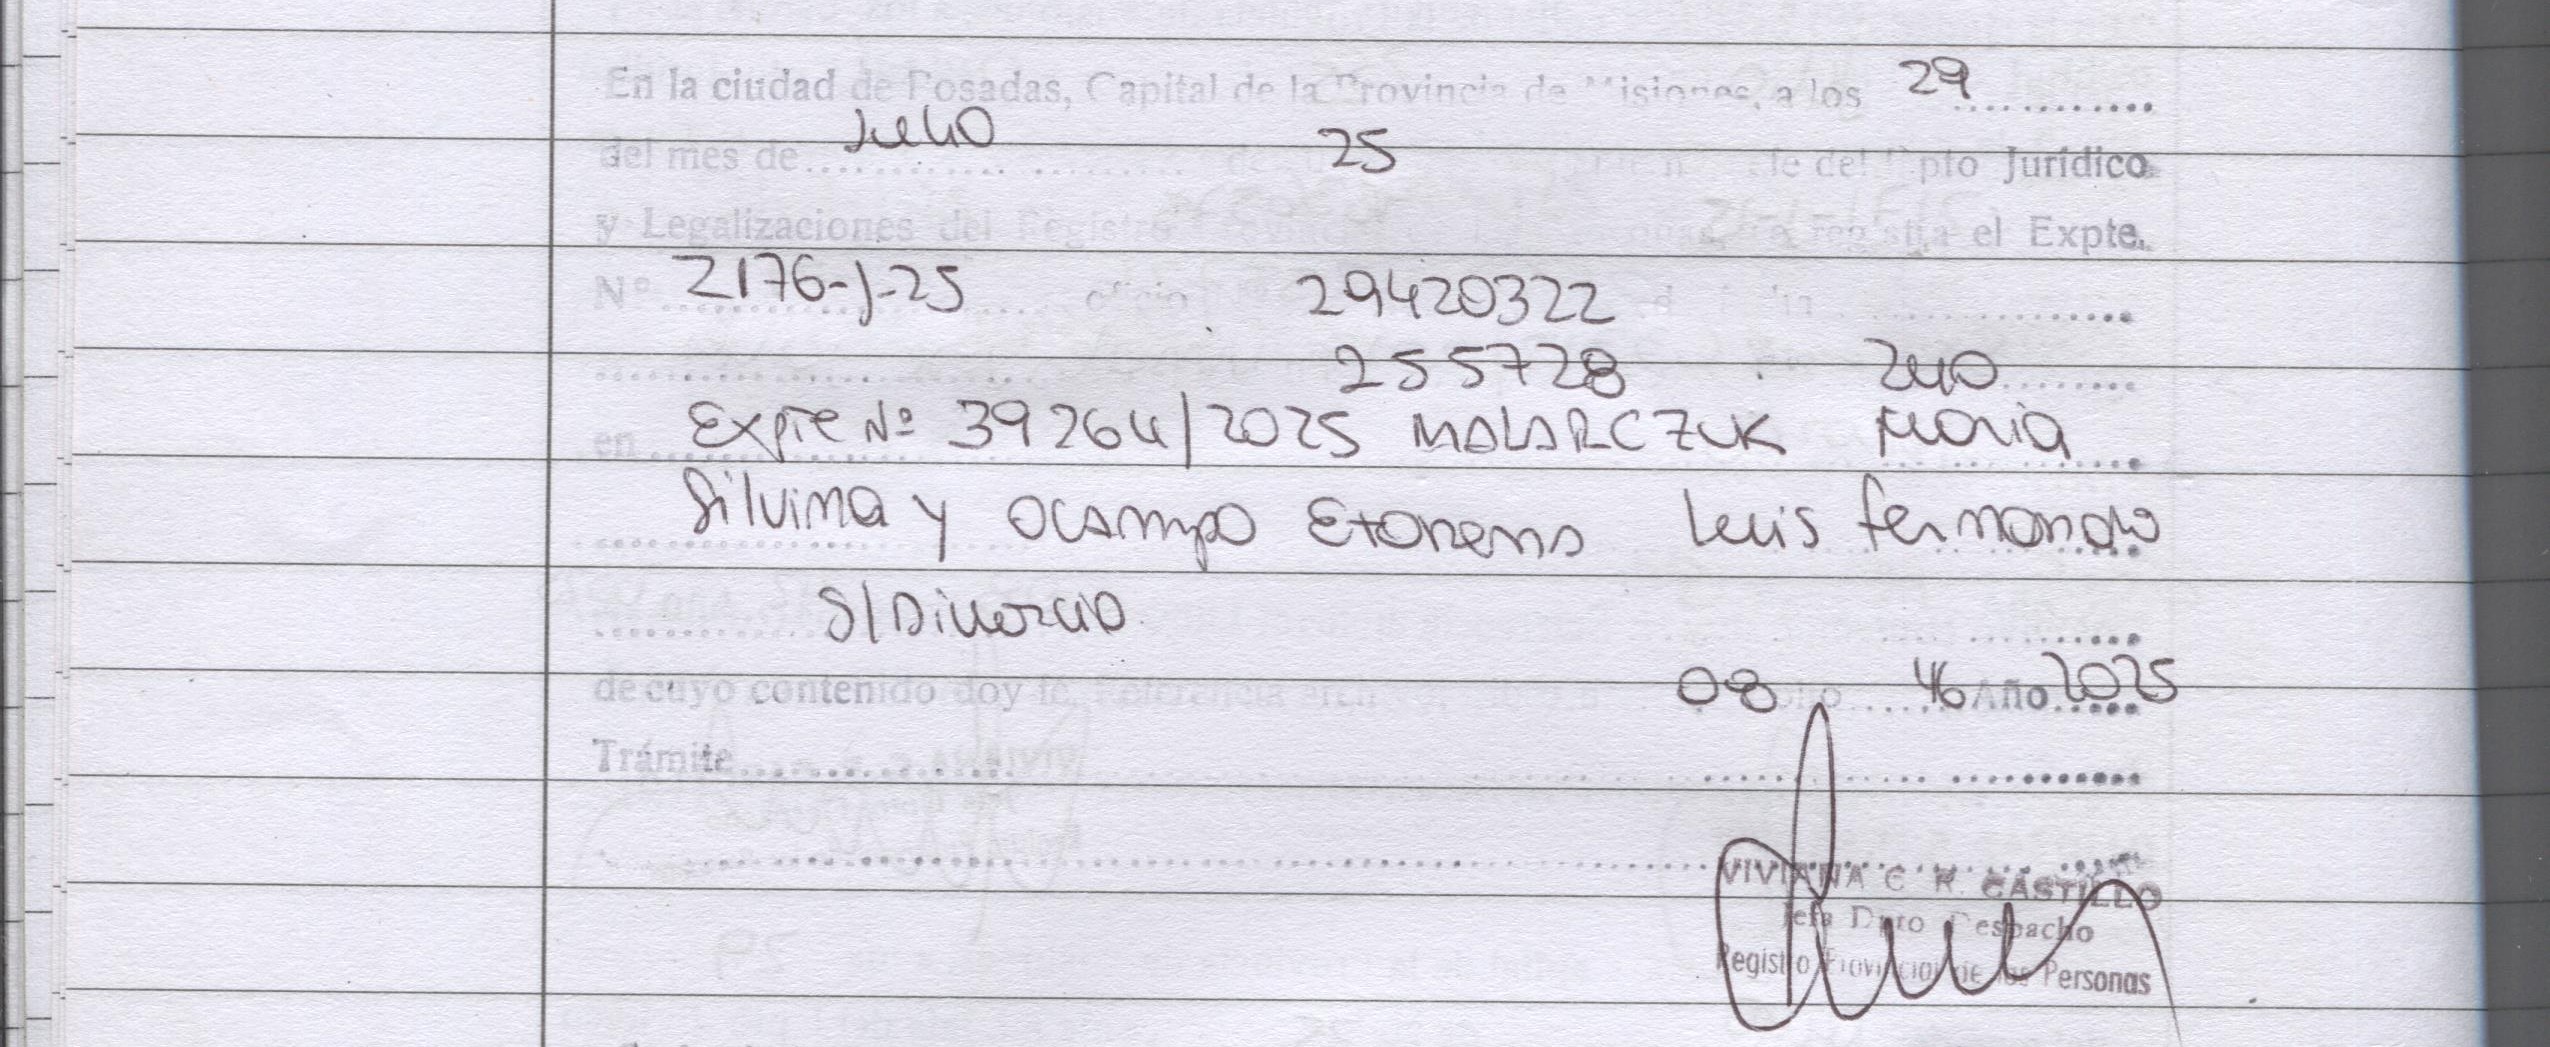 En la ciudad de Posadas, Capital de la Provincia de Misiones, a los 29
del mes de Julio 25 del Dpto Jurídico
y Legalizaciones del el Expte.
Nº 2176-J-25 oficio 29420322
255728 240
en Expte Nº 39264/2025 MALARCZUK Maria
Silvina y Ocampo Luis Fernando
S/Divorcio
de cuyo contenido doy fe. Referencia 08 46 Año 2025
Trámite
VIVIANA C. R. CASTILLO
Jefa Dpto Despacho
Registro Provincial de las Personas